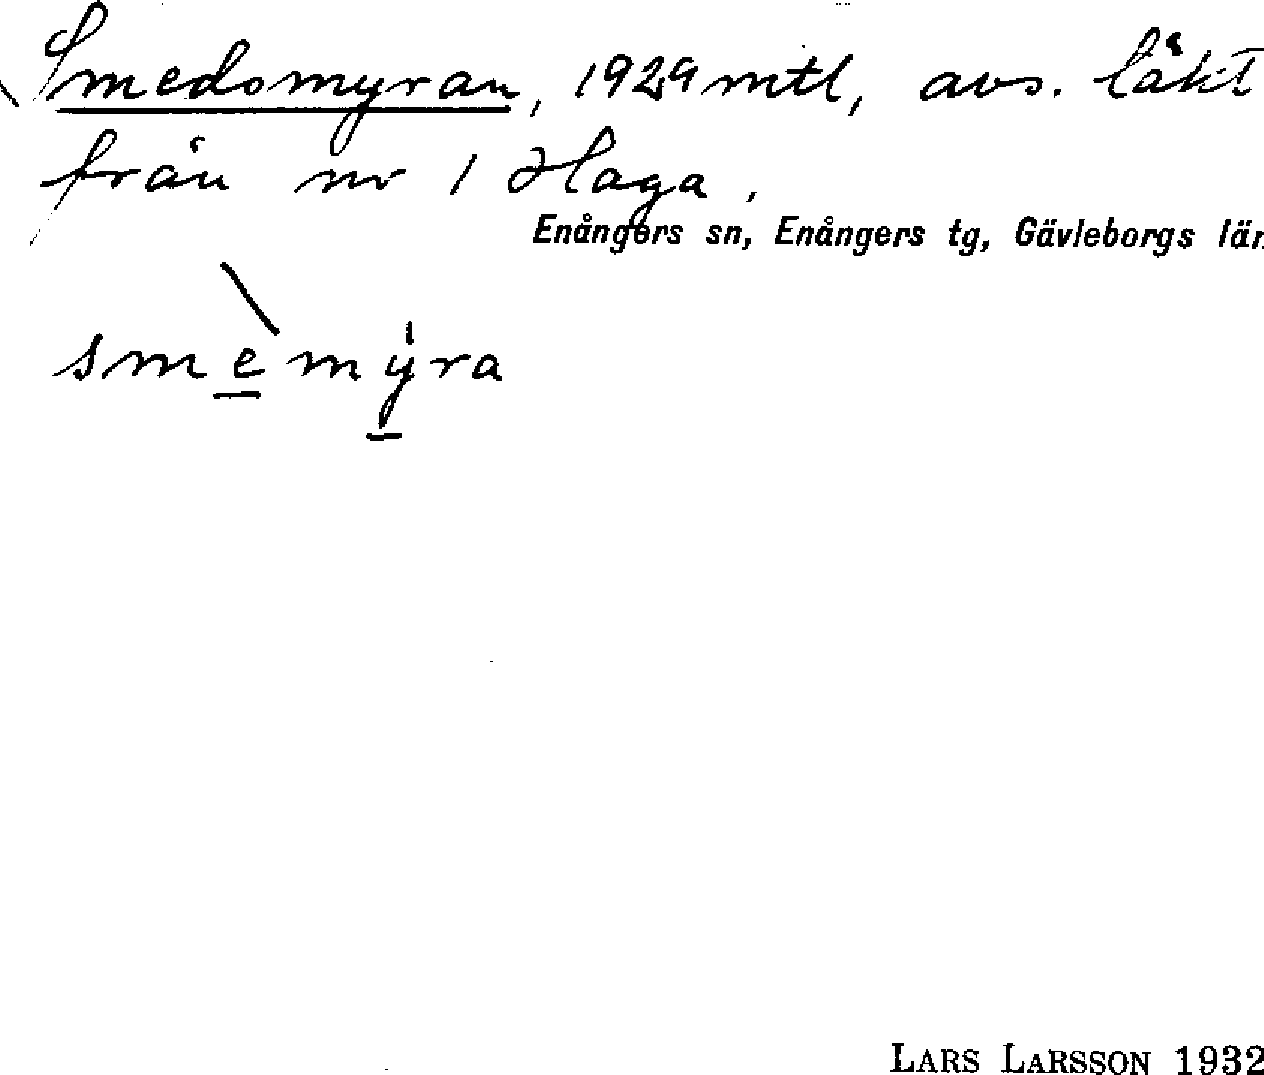 Smedsmyran, 1929 mtl, avs. läkt
från nr 1 Haga,
Enångers sn, Enångers tg, Gävleborgs län
smèmy̍ra
LARS LARSSON 1932